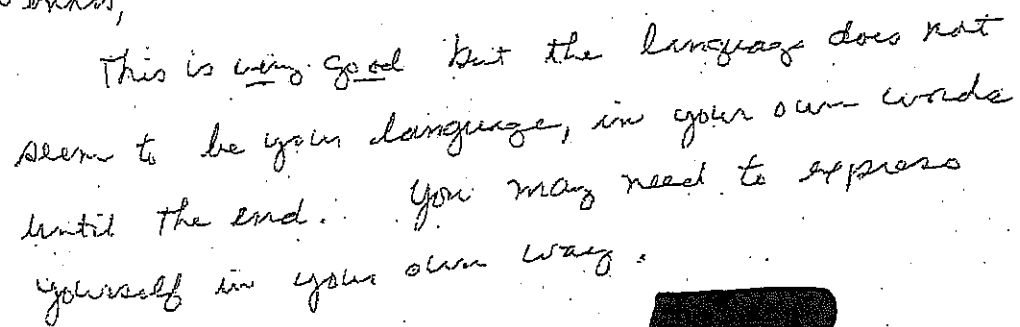 This is very good but the language does not
seem to be your language, in your own words
until the end. You may need to express
yourself in your own way.